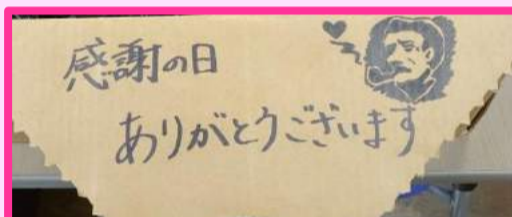 感謝の日
ありがとうございます